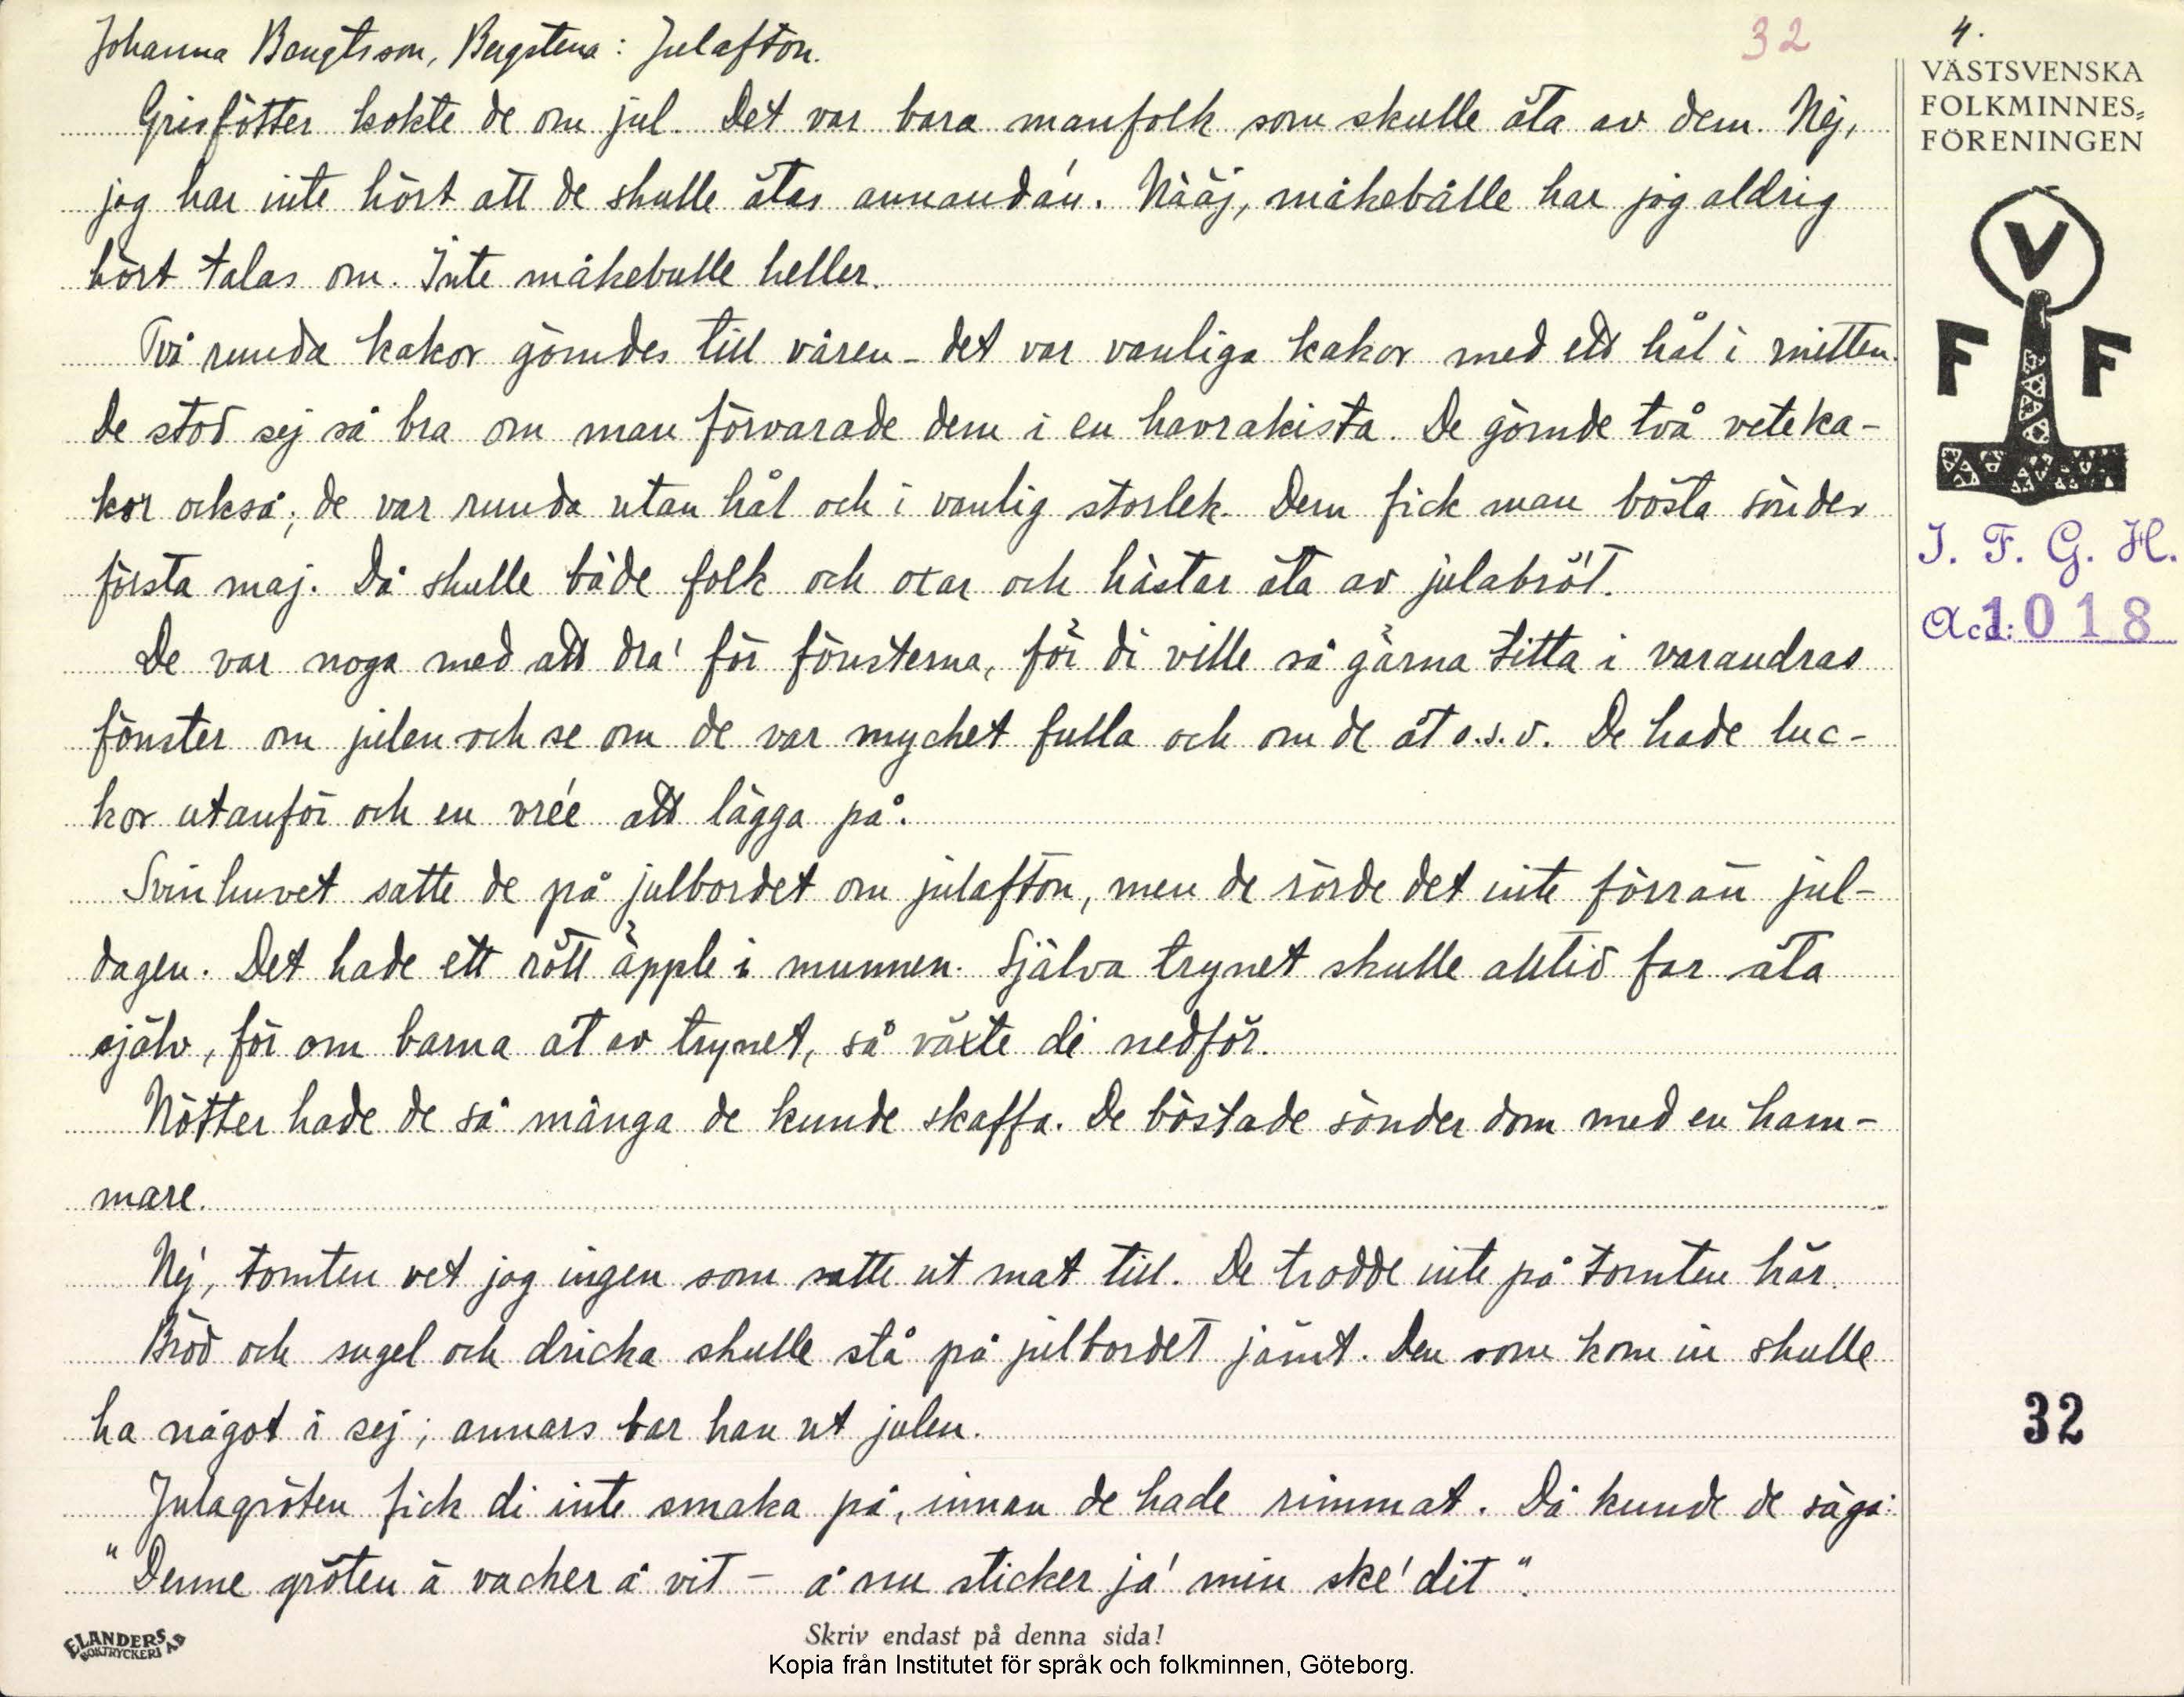 Johanna Bengtsson, Bergstena: Julafton.
32
4.
VÄSTSVENSKA
FOLKMINNES=
FÖRENINGEN
Grisfötter kokte de om jul. Det var bara manfolk som skulle äta av dem. Nej,
jag har inte hört att de skulle ätas annandá'n. Nääj, måkebålle har jag aldrig
hört talas om. Inte måkebulle heller.
Två runda kakor gömdes till våren - det var vanliga kakor med ett hål i mitten.
De stod sej så bra om man förvarade dem i en havrakista. De gömde två veteka-
kor också; de var runda utan hål och i vanlig storlek. Dem fick man bösta sönder
första maj. Då skulle både folk och oxar och hästar äta av julabröt.
De var noga med att dra' för fönsterna, för di ville så gärna titta i varandras
fönster om julen och se om de var mycket fulla och om de åt o.s.v. De hade luc-
kor utanför och en vreé att lägga på.
Svinhuvet satte de på julbordet om julafton, men de rörde det inte förrän jul-
dagen. Det hade ett rött äpple i munnen. Själva trynet skulle alltid far äta
själv, för om barna åt av trynet, så växte di nedför.
Nötter hade de så många de kunde skaffa. De böstade sönder dom med en ham-
mare.
Nej, tomten vet jag ingen som satte ut mat till. De trodde inte på tomten här.
Bröd och sugel och dricka skulle stå på julbordet jämt. Den som kom in skulle
ha något i sej; annars bar han ut julen.
Julagröten fick di inte smaka på, innan de hade rimmat. Då kunde de säga:
"Denne gröten ä vacker å vit - å nu sticker ja' min ske' dit".
V
F F
I. F. G. H.
Acc: 1018
32
ELANDERS
BOKTRYCKERI AB
Skriv endast på denna sida!
Kopia från Institutet för språk och folkminnen, Göteborg.